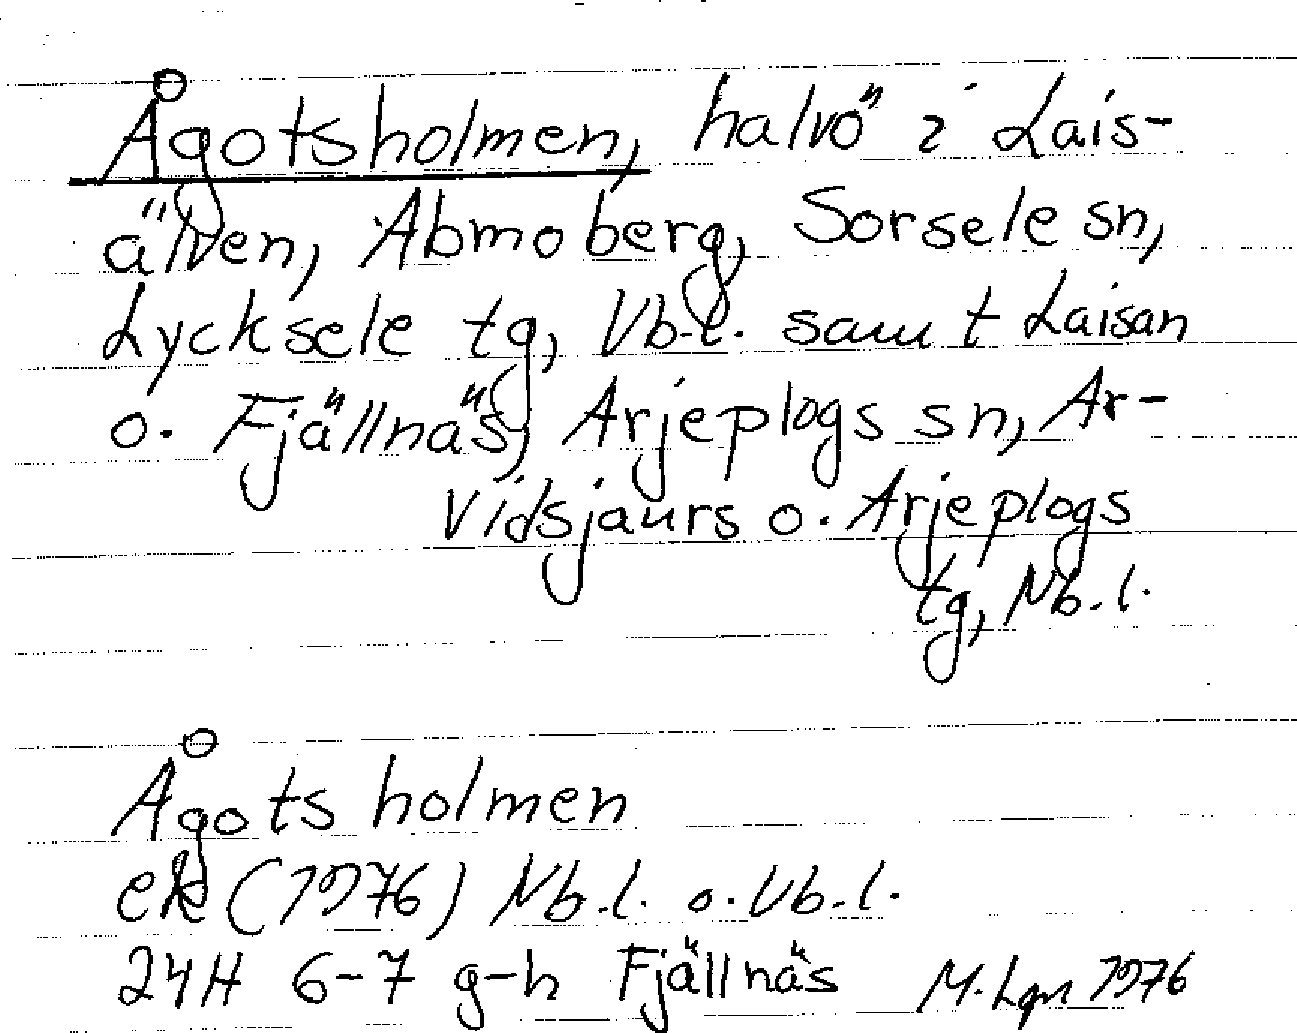 Ågotsholmen, halvö i Lais-
älven, Abmoberg, Sorsele sn,
Lycksele tg, Vb.l. samt Laisan
o. Fjällnäs, Arjeplogs sn, Ar-
vidsjaurs o. Arjeplogs
tg, Nb.l.
Ågotsholmen
ek (1976) Nb.l. o. Vb.l.
24H 6-7 g-h Fjällnäs M. Lgn 1976